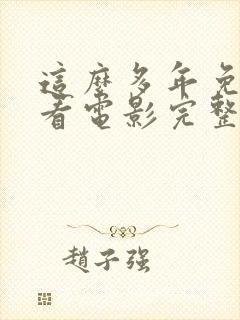 這麼多年免
看電影完整
趙子强